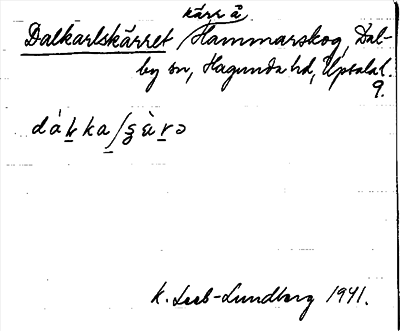 kärr å
Dalkarlskärret Hammarskog, Dal-
by sn, Hagunda hd, Upsala l.
9.
K. Leeb-Lundberg 1941.